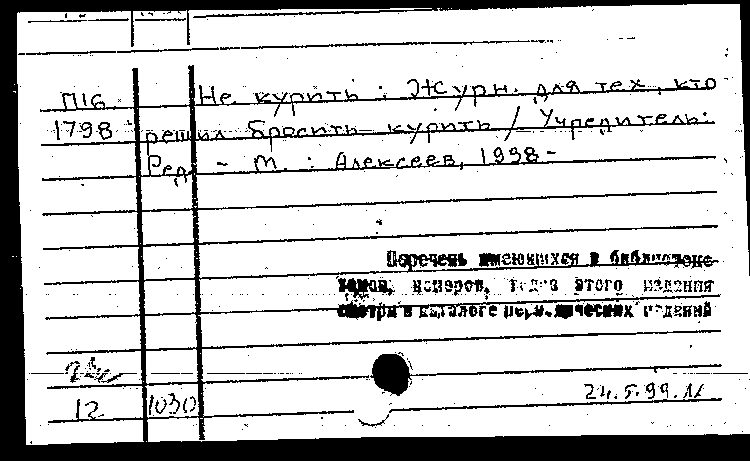 П16 Не курить : Журн. для тех, кто
1798 решил бросить курить / Учредитель:
Ред. - М. : Алексеев, 1998 -
Перечень имеющихся в библиотеке
томов, номеров, годов этого издания
смотри в каталоге периодических изданий
12 1030 24.5.99.